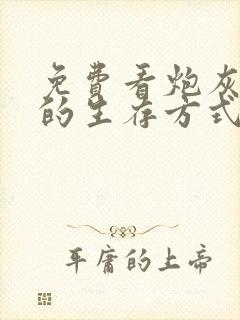 免費看炮灰
的生存方式
平庸的上帝